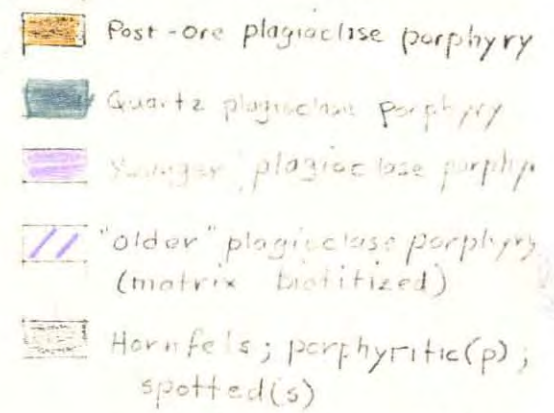 Post-ore plagioclase porphyry
Quartz plagioclase porphyry
Younger plagioclase porphy.
"older" plagioclase porphyry
(matrix biotitized)
Hornfels; porphyritic(p);
spotted(s)